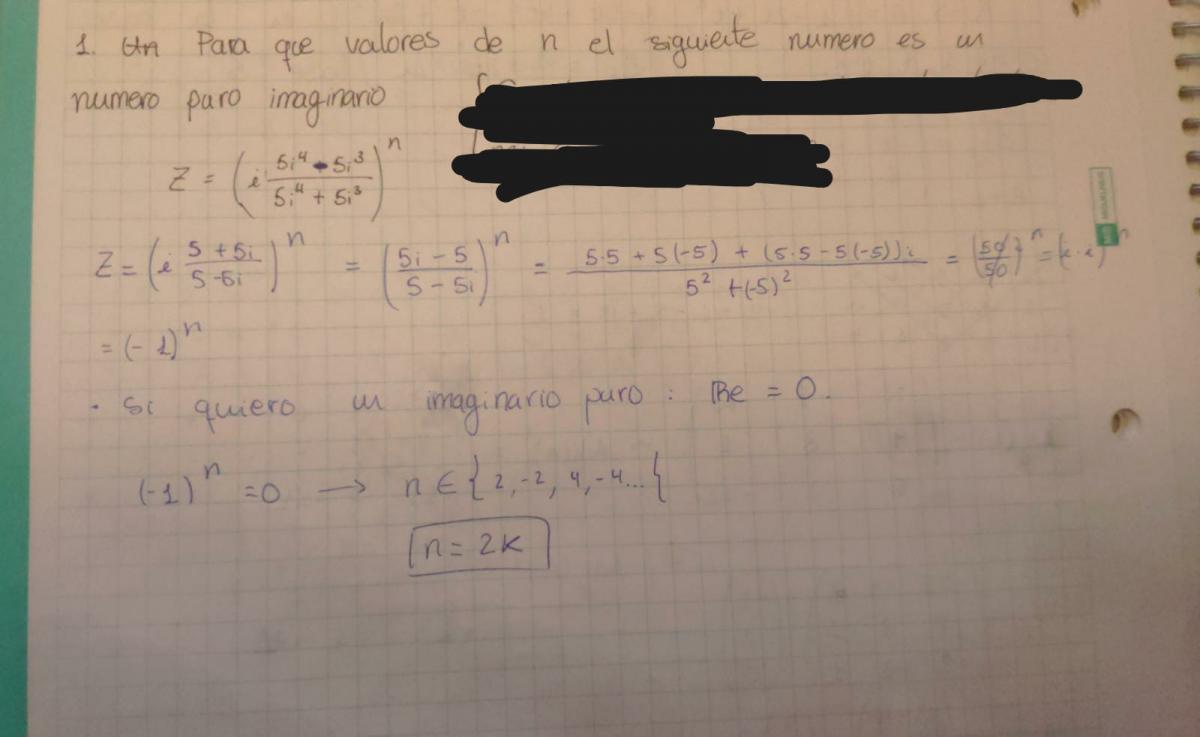 1. Un Para que valores de n el siguiente numero es un
numero puro imaginario
Z = (i (5i⁴ - 5i³)/(5i⁴ + 5i³))ⁿ
Z = (i (5 + 5i)/(5 - 5i))ⁿ = ((5i - 5)/(5 - 5i))ⁿ = (5·5 + 5(-5) + (5·5 - 5(-5))i)/(5² + (-5)²) = (50/50)ⁿ = (i · i)ⁿ
= (-1)ⁿ
· Si quiero un imaginario puro : Re = 0.
(-1)ⁿ = 0 → n ∈ { 2, -2, 4, -4... {
n = 2K